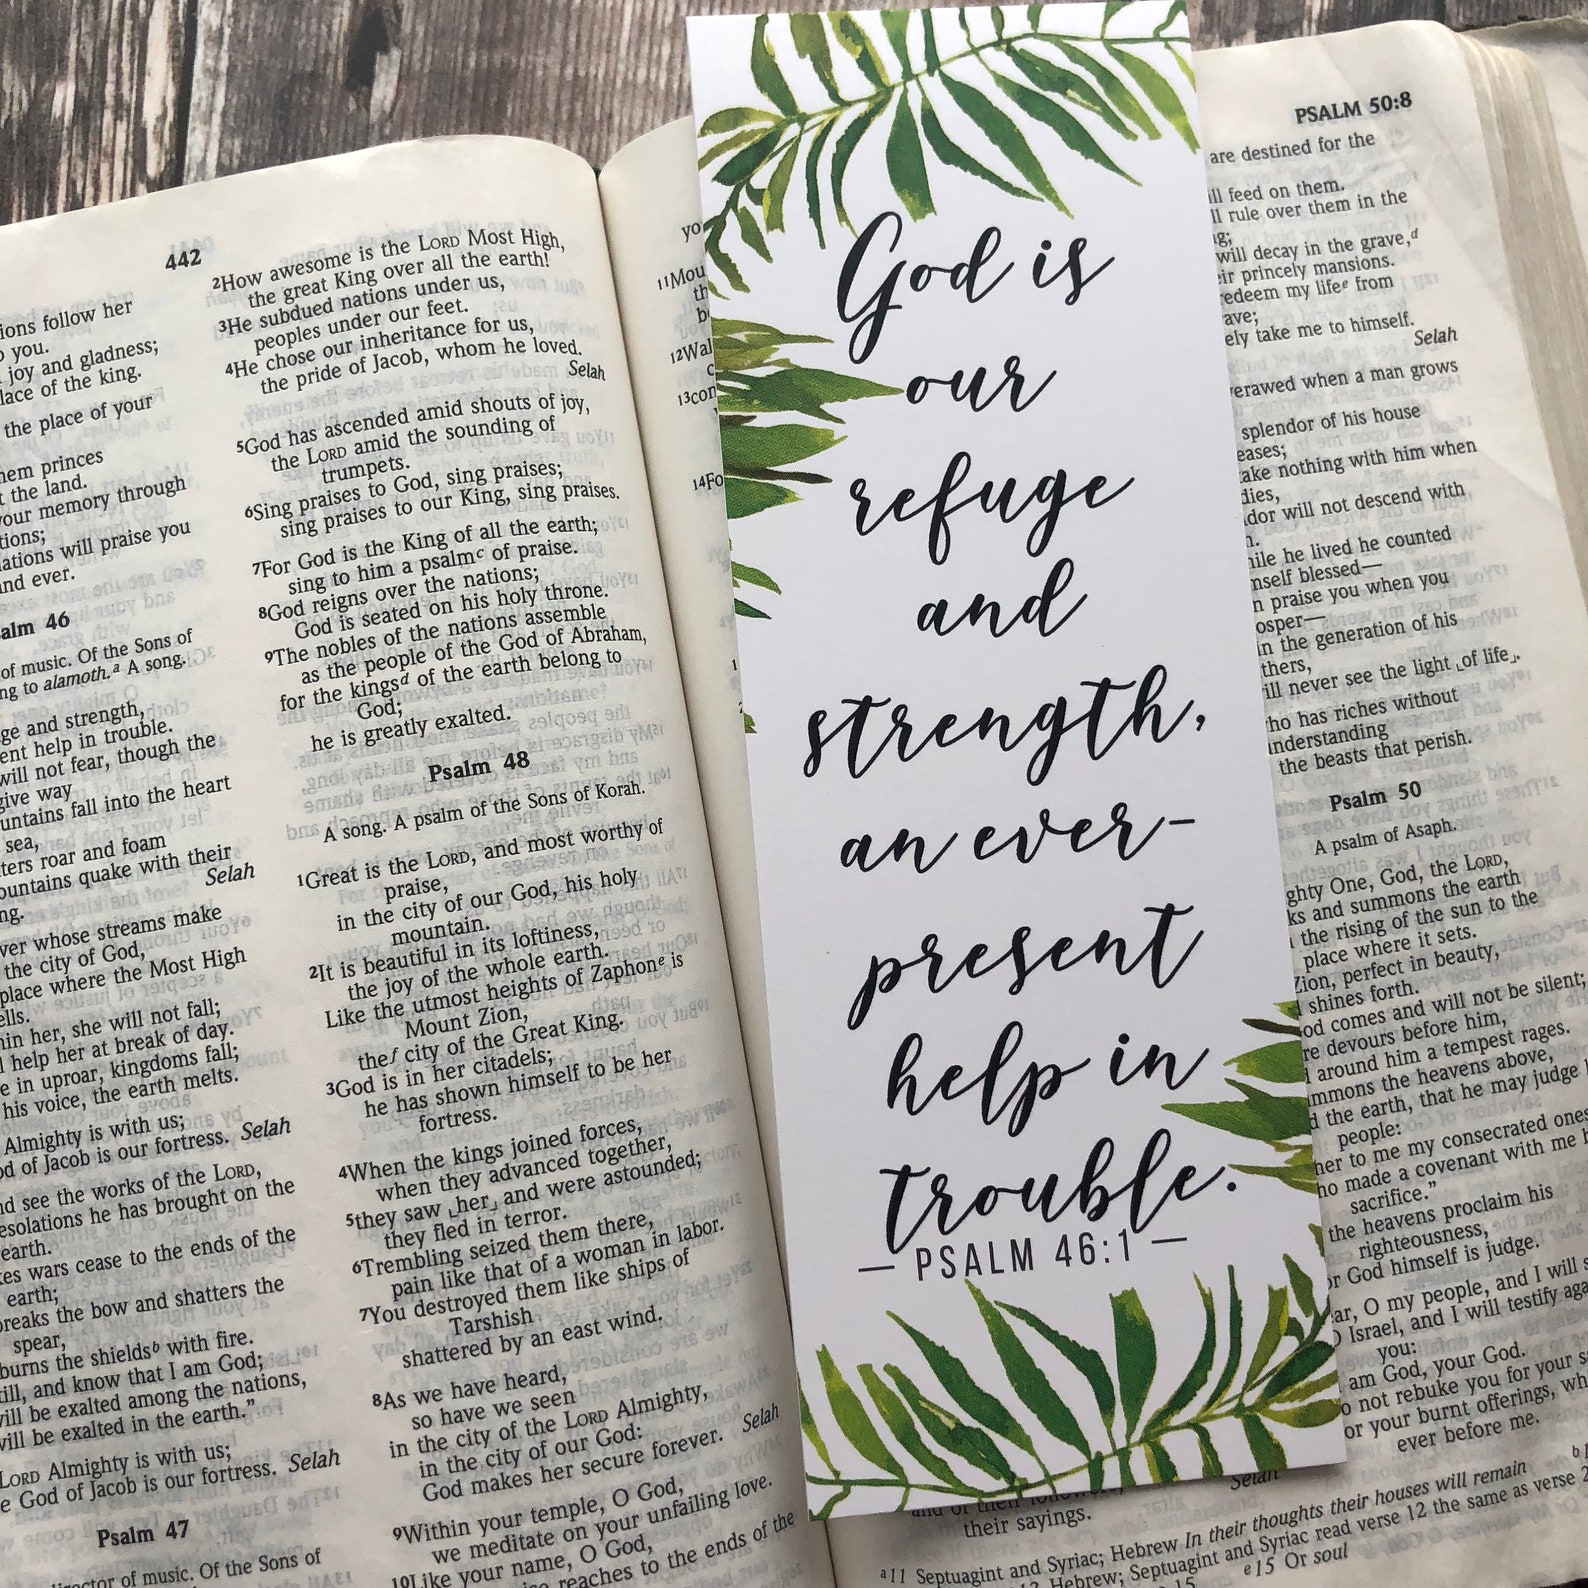 442
ions follow her
you.
joy and gladness;
lace of the king.
the place of your
hem princes
t the land.
your memory through
tions;
ations will praise you
nd ever.
alm 46
of music. Of the Sons of
ng to alamoth.a A song.
ge and strength,
ent help in trouble.
will not fear, though the
give way
untains fall into the heart
sea,
ters roar and foam
ountains quake with their
ng. Selah
ver whose streams make
the city of God,
place where the Most High
ells.
hin her, she will not fall;
l help her at break of day.
e in uproar, kingdoms fall;
his voice, the earth melts.
Almighty is with us;
od of Jacob is our fortress. Selah
nd see the works of the LORD,
esolations he has brought on the
earth.
kes wars cease to the ends of the
earth;
breaks the bow and shatters the
spear,
burns the shieldsb with fire.
till, and know that I am God;
vill be exalted among the nations,
vill be exalted in the earth.”
LORD Almighty is with us;
e God of Jacob is our fortress. Selah
Psalm 47
director of music. Of the Sons of
2How awesome is the LORD Most High,
the great King over all the earth!
3He subdued nations under us,
peoples under our feet.
4He chose our inheritance for us,
the pride of Jacob, whom he loved.
Selah
5God has ascended amid shouts of joy,
the LORD amid the sounding of
trumpets.
6Sing praises to God, sing praises;
sing praises to our King, sing praises.
7For God is the King of all the earth;
sing to him a psalmc of praise.
8God reigns over the nations;
God is seated on his holy throne.
9The nobles of the nations assemble
as the people of the God of Abraham,
for the kingsd of the earth belong to
God;
he is greatly exalted.
Psalm 48
A song. A psalm of the Sons of Korah.
1Great is the LORD, and most worthy of
praise,
in the city of our God, his holy
mountain.
2It is beautiful in its loftiness,
the joy of the whole earth.
Like the utmost heights of Zaphone is
Mount Zion,
thef city of the Great King.
3God is in her citadels;
he has shown himself to be her
fortress.
4When the kings joined forces,
when they advanced together,
5they saw ⌞her⌟ and were astounded;
they fled in terror.
6Trembling seized them there,
pain like that of a woman in labor.
7You destroyed them like ships of
Tarshish
shattered by an east wind.
8As we have heard,
so have we seen
in the city of the LORD Almighty,
in the city of our God:
God makes her secure forever. Selah
9Within your temple, O God,
we meditate on your unfailing love.
10Like your name, O God,
reaches to the ends of the
yo
11Mou
th
b
12Wal
c
13con
14Fo
God is
our
refuge
and
strength,
an ever-
present
help in
trouble.
— PSALM 46:1 —
PSALM 50:8
are destined for the
ill feed on them.
ll rule over them in the
g;
will decay in the grave,d
eir princely mansions.
redeem my lifee from
ave;
ely take me to himself.
Selah
verawed when a man grows
splendor of his house
eases;
ake nothing with him when
dies,
dor will not descend with
n.
hile he lived he counted
mself blessed—
n praise you when you
osper—
in the generation of his
thers,
ill never see the light ⌞of life⌟.
ho has riches without
nderstanding
the beasts that perish.
Psalm 50
A psalm of Asaph.
ghty One, God, the LORD,
ks and summons the earth
the rising of the sun to the
place where it sets.
Zion, perfect in beauty,
shines forth.
od comes and will not be silent;
re devours before him,
around him a tempest rages.
mmons the heavens above,
d the earth, that he may judge
people:
her to me my consecrated ones
ho made a covenant with me b
sacrifice.”
the heavens proclaim his
righteousness,
or God himself is judge.
ar, O my people, and I will s
O Israel, and I will testify aga
you:
am God, your God.
o not rebuke you for your s
or your burnt offerings, wh
ever before me.
their sayings. Selah
a11 Septuagint and Syriac; Hebrew In their thoughts their houses will remain
Hebrew; Septuagint and Syriac read verse 12 the same as verse 2
e15 Or soul